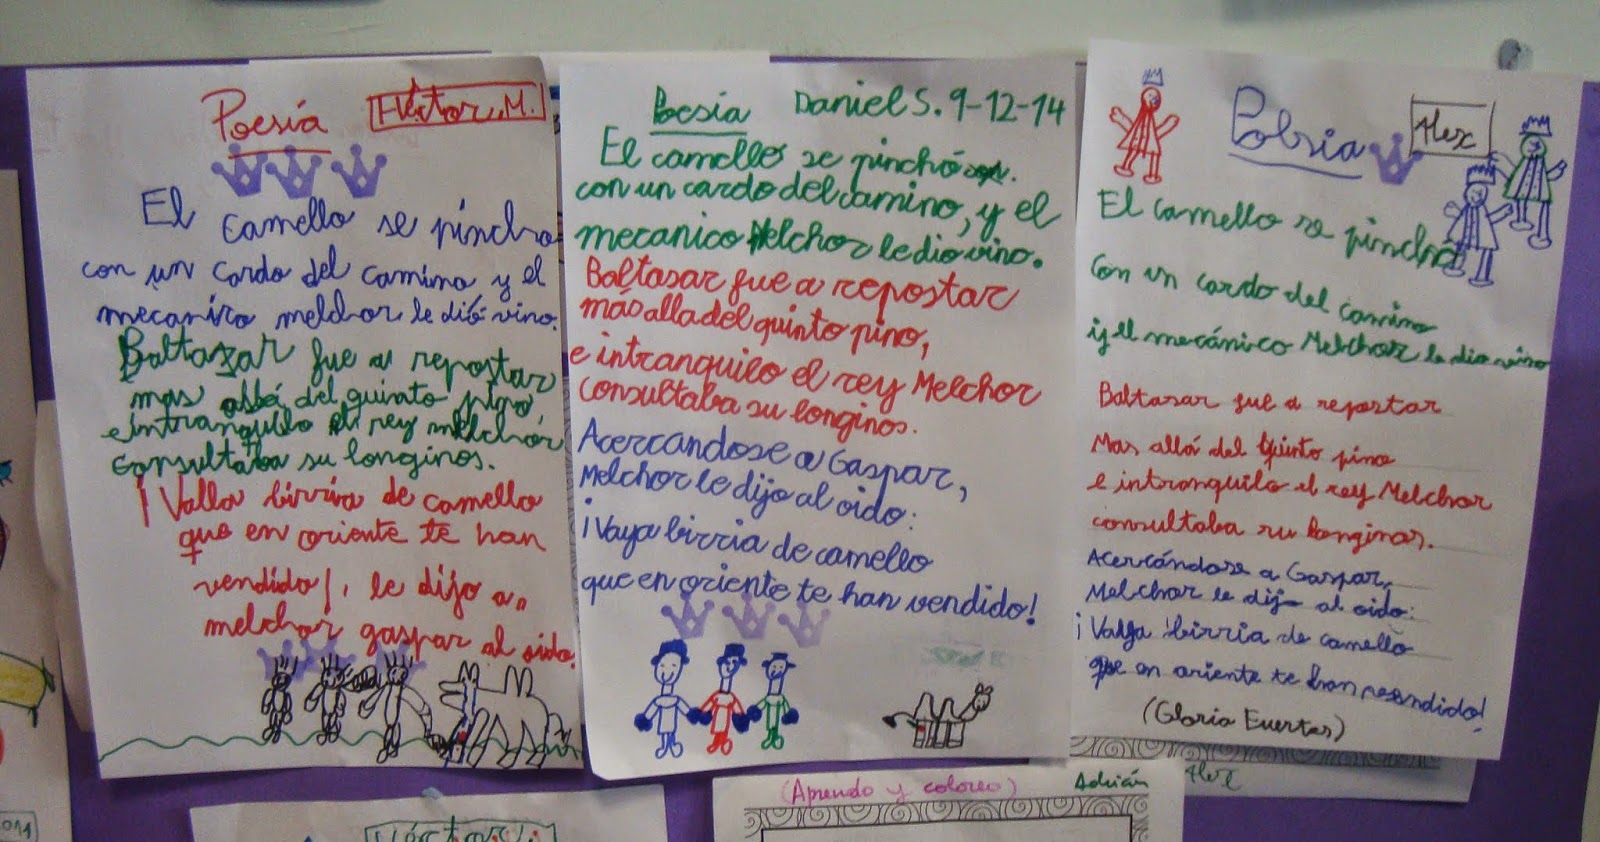 Poesía
Héctor M.
El camello se pincho
con un cardo del camino y el
mecanico melchor le dió vino.
Baltazar fue a repostar
mas allá del quinto pino,
e intranquilo el rey melchor
consultaba su longinos.
¡Valla birria de camello
que en oriente te han
vendido!, le dijo a
melchor gaspar al oido.
Poesía Daniel S. 9-12-14
El camello se pinchó
con un cardo del camino, y el
mecanico Melchor le dió vino.
Baltasar fue a repostar
más alla del quinto pino,
e intranquilo el rey Melchor
consultaba su longinos.
Acercandose a Gaspar,
Melchor le dijo al oido:
¡Vaya birria de camello
que en oriente te han vendido!
Poesia
Alex
El camello se pinchó
con un cardo del camino
y el mecánico Melchor le dio vino
Baltasar fue a repostar
Mas allá del quinto pino
e intranquilo el rey Melchor
consultaba su longinos.
Acercándose a Gaspar,
Melchor le dijo al oido:
¡Vaya birria de camello
que en oriente te han
(Gloria Fuertes)
Alex
(Aprendo y coloreo) Adrián